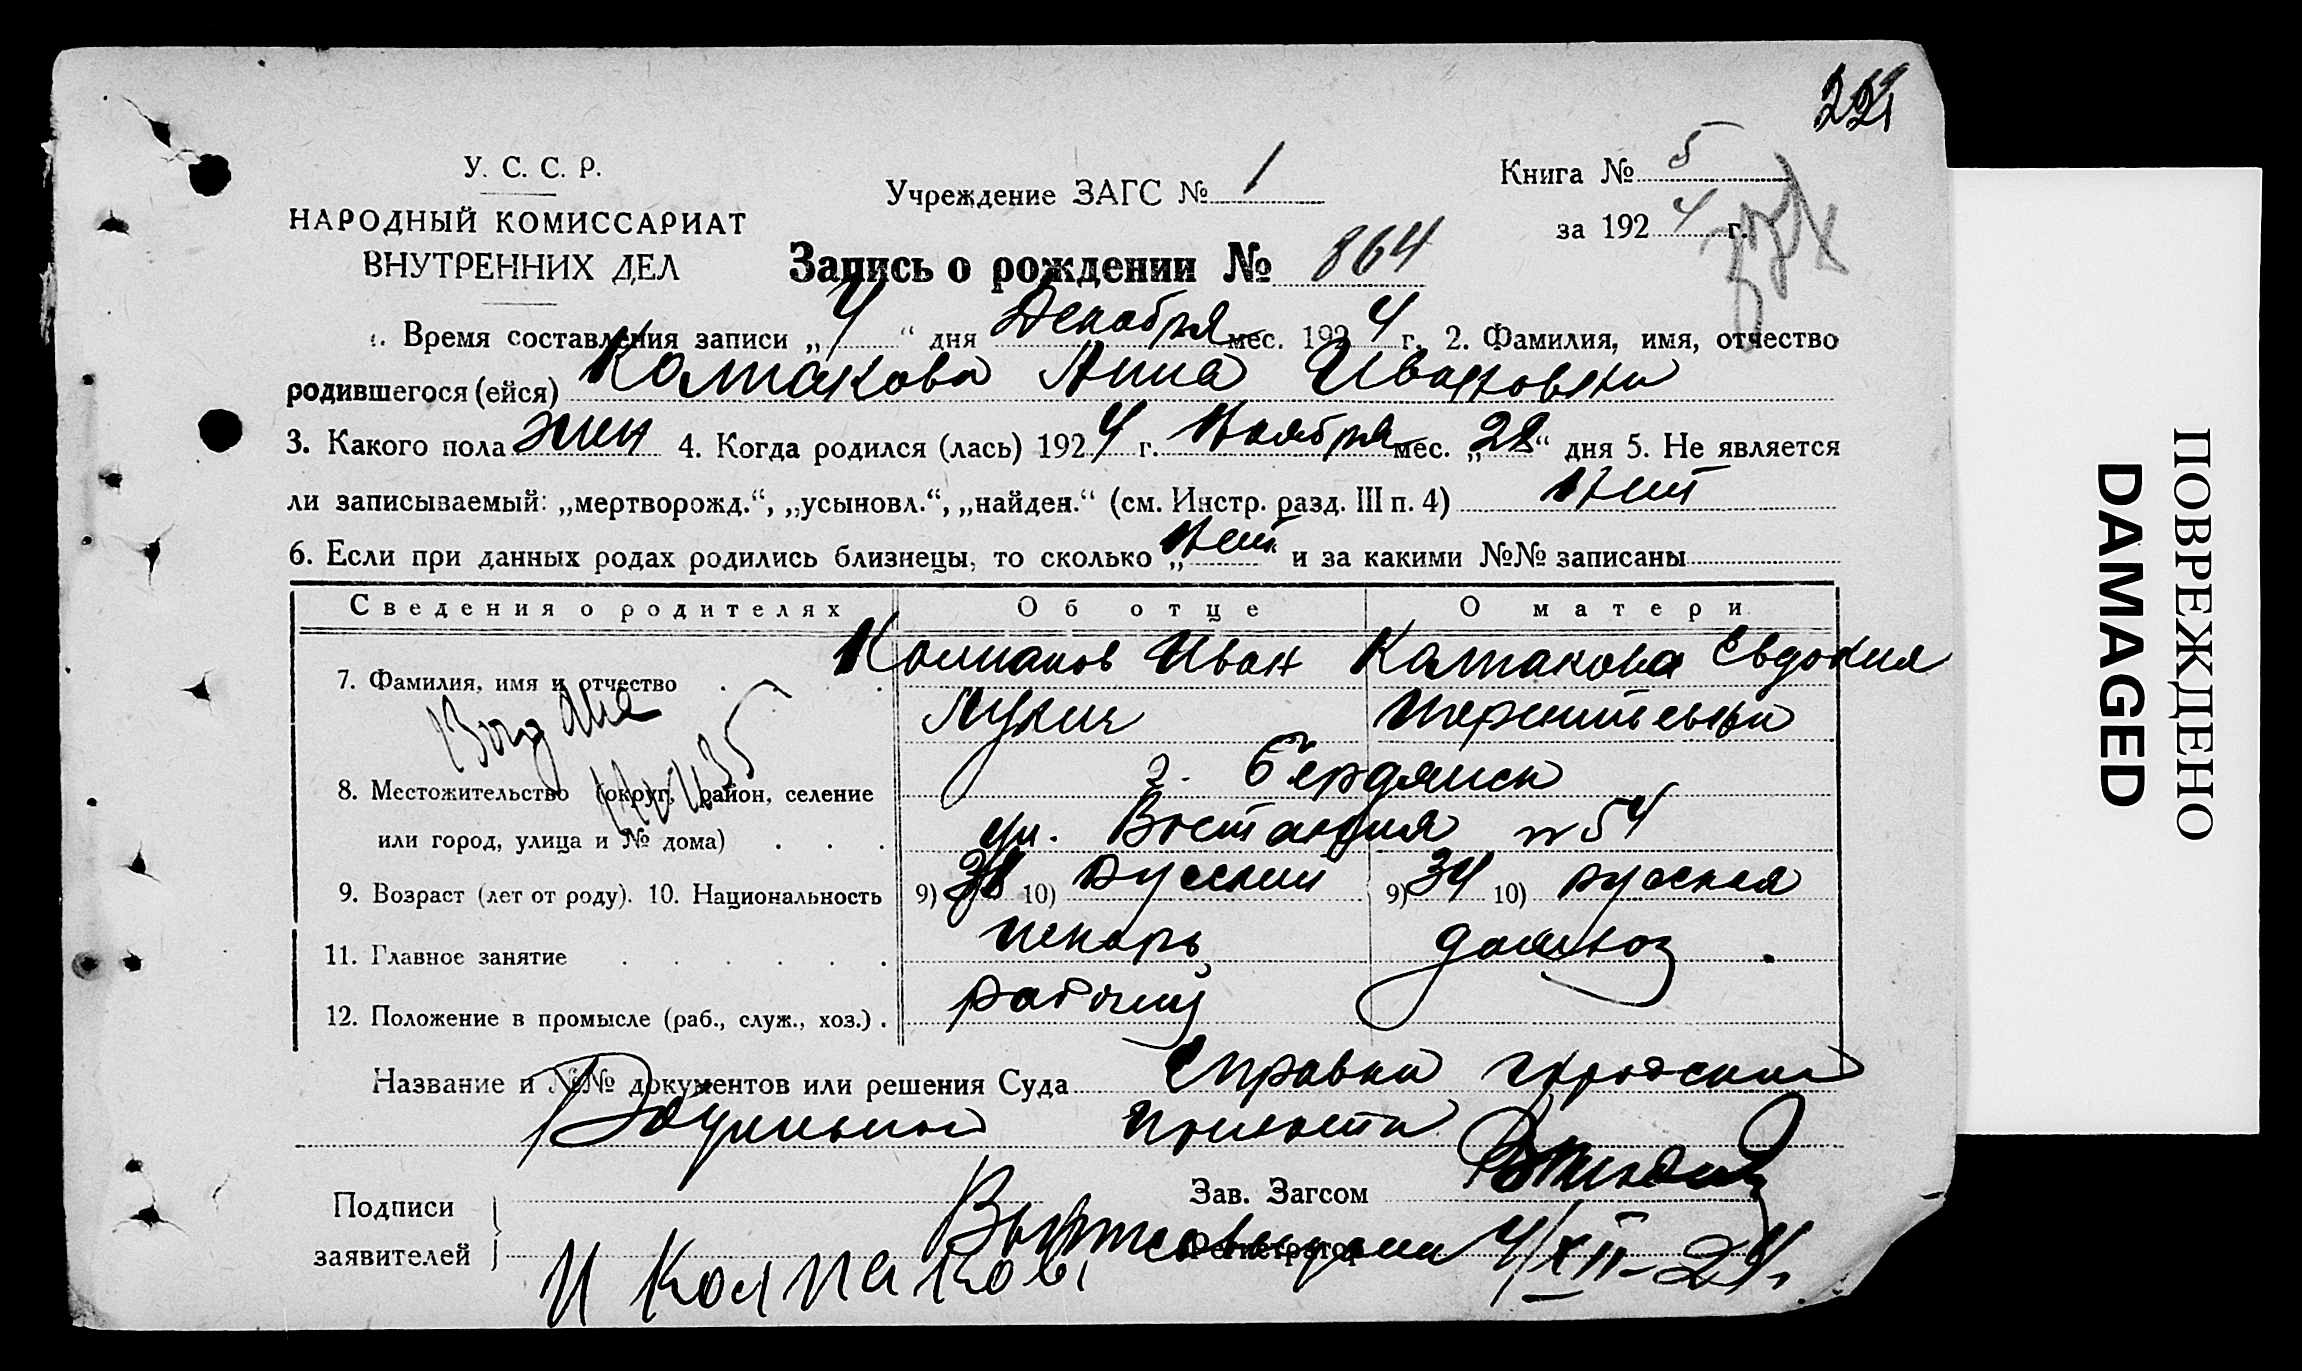 У. С. С. Р.
НАРОДНЫЙ КОМИССАРИАТ
ВНУТРЕННИХ ДЕЛ
Учреждение ЗАГС № 1
Книга № 5
за 1924 г.
Запись о рождении № 864
1. Время составления записи „4“ дня Декабря мес. 1924 г. 2. Фамилия, имя, отчество
родившегося (ейся) Колпакова Анна Ивановна
3. Какого пола жен 4. Когда родился (лась) 1924 г. Ноября мес. „28“ дня 5. Не является
ли записываемый: „мертворожд.“, „усыновл.“, „найден.“ (см. Инстр. разд. III п. 4) нет
6. Если при данных родах родились близнецы, то сколько „нет и за какими №№ записаны
Сведения о родителях Об отце О матери
7. Фамилия, имя и отчество Колпаков Иван Колпакова Евдокия
Лукич Терентьевна
8. Местожительство (округ, район, селение г. Бердянск
или город, улица и № дома) ул. Востания № 54
9. Возраст (лет от роду). 10. Национальность 9) 38 10) русский 9) 34 10) русская
11. Главное занятие пекарь домхоз
12. Положение в промысле (раб., служ., хоз.) рабочий
Название и №№ документов или решения Суда Справка городской
Родильной
Подписи
заявителей
Зав. Загсом
Регистратор 4/XII-24 г.
И Колпаков
ПОВРЕЖДЕНО
DAMAGED